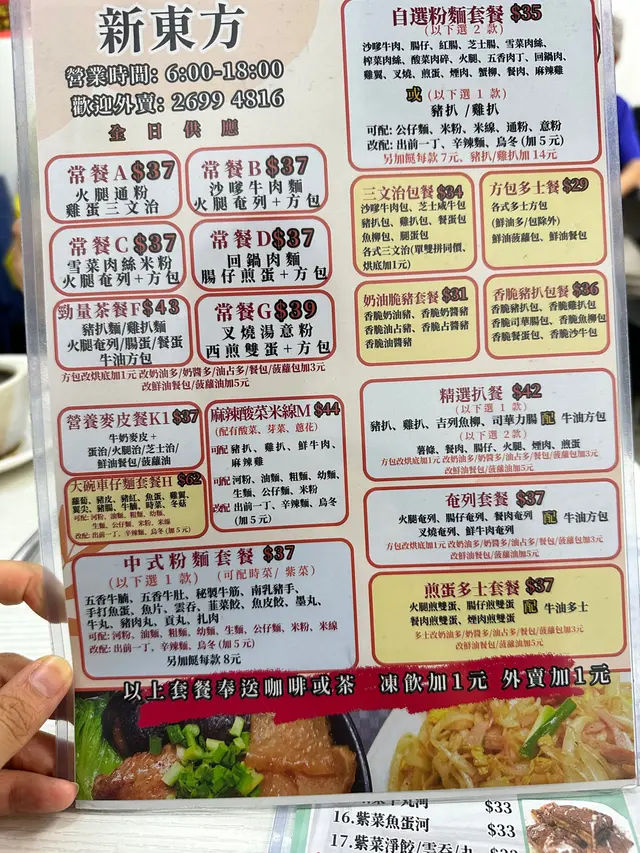 新東方
營業時間: 6:00-18:00
歡迎外賣: 2699 4816
全日供應
常餐A $37
火腿通粉
雞蛋三文治
常餐B $37
沙嗲牛肉麵
火腿奄列+方包
常餐C $37
雪菜肉絲米粉
火腿奄列+方包
常餐D $37
回鍋肉麵
腸仔煎蛋+方包
勁量茶餐F $43
豬扒麵/雞扒麵
火腿奄列/腸蛋/餐蛋
牛油方包
常餐G $39
叉燒湯意粉
西煎雙蛋+方包
方包改烘底加1元 改奶油多/奶醬多/油占多/餐包/菠蘿包加3元
改鮮油餐包/菠蘿油加5元
營養麥皮餐K1 $37
牛奶麥皮+
蛋治/火腿治/芝士治/
鮮油餐包/菠蘿油
大碗車仔麵套餐H $62
蘿蔔、豬皮、豬紅、魚蛋、雞翼、
翼尖、豬腸、牛腩、時菜、冬菇
可配: 河粉、油麵、粗麵、幼麵、
生麵、公仔麵、米粉、米線
改配: 出前一丁、辛辣麵、烏冬 (加5元)
麻辣酸菜米線M $44
(配有酸菜、芽菜、蔥花)
可配 豬扒、雞扒、鮮牛肉、
麻辣雞
可配 河粉、油麵、粗麵、幼麵、
生麵、公仔麵、米粉
改配 出前一丁、辛辣麵、烏冬
(加5元)
中式粉麵套餐 $37
(以下選1款) (可配時菜/紫菜)
五香牛腩、五香牛肚、秘製牛筋、南乳豬手、
手打魚蛋、魚片、雲吞、韮菜餃、魚皮餃、墨丸、
牛丸、豬肉丸、貢丸、扎肉
可配: 河粉、油麵、粗麵、幼麵、生麵、公仔麵、米粉、米線
改配: 出前一丁、辛辣麵、烏冬 (加5元)
另加餸每款8元
自選粉麵套餐 $35
(以下選2款)
沙嗲牛肉、腸仔、紅腸、芝士腸、雪菜肉絲、
榨菜肉絲、酸菜肉碎、火腿、五香肉丁、回鍋肉、
雞翼、叉燒、煎蛋、煙肉、蟹柳、餐肉、麻辣雞
或 (以下選1款)
豬扒 /雞扒
可配: 公仔麵、米粉、米線、通粉、意粉
改配: 出前一丁、辛辣麵、烏冬 (加5元)
另加餸每款7元, 豬扒/雞扒加14元
三文治包餐 $34
沙嗲牛肉包、芝士咸牛包
豬扒包、雞扒包、餐蛋包
魚柳包、腿蛋包
各式三文治(單雙拼同價、
烘底加1元)
方包多士餐 $29
各式多士方包
(鮮油多/包除外)
鮮油菠蘿包、鮮油餐包
奶油脆豬套餐 $31
香脆奶油豬、香脆奶醬豬
香脆油占豬、香脆占醬豬
香脆油醬豬
香脆豬扒包餐 $36
香脆豬扒包、香脆雞扒包
香脆司華腸包、香脆魚柳包
香脆餐蛋包、香脆沙牛包
精選扒餐 $42
(以下選1款)
豬扒、雞扒、吉列魚柳、司華力腸 配 牛油方包
(以下選2款)
薯條、餐肉、腸仔、火腿、煙肉、煎蛋
方包改烘底加1元 改奶油多/奶醬多/油占多/餐包/菠蘿包加3元
改鮮油餐包/菠蘿油加5元
奄列套餐 $37
火腿奄列、腸仔奄列、餐肉奄列 配 牛油方包
叉燒奄列、鮮牛肉奄列
方包改烘底加1元 改奶油多/奶醬多/油占多/餐包/菠蘿包加3元
改鮮油餐包/菠蘿油加5元
煎蛋多士套餐 $37
火腿煎雙蛋、腸仔煎雙蛋 配 牛油多士
餐肉煎雙蛋、煙肉煎雙蛋
多士改奶油多/奶醬多/油占多/餐包/菠蘿包加3元
改鮮油餐包/菠蘿油加5元
以上套餐奉送咖啡或茶 凍飲加1元 外賣加1元
$33
16.紫菜魚蛋河 $33
17.紫菜淨餃/雲吞/丸